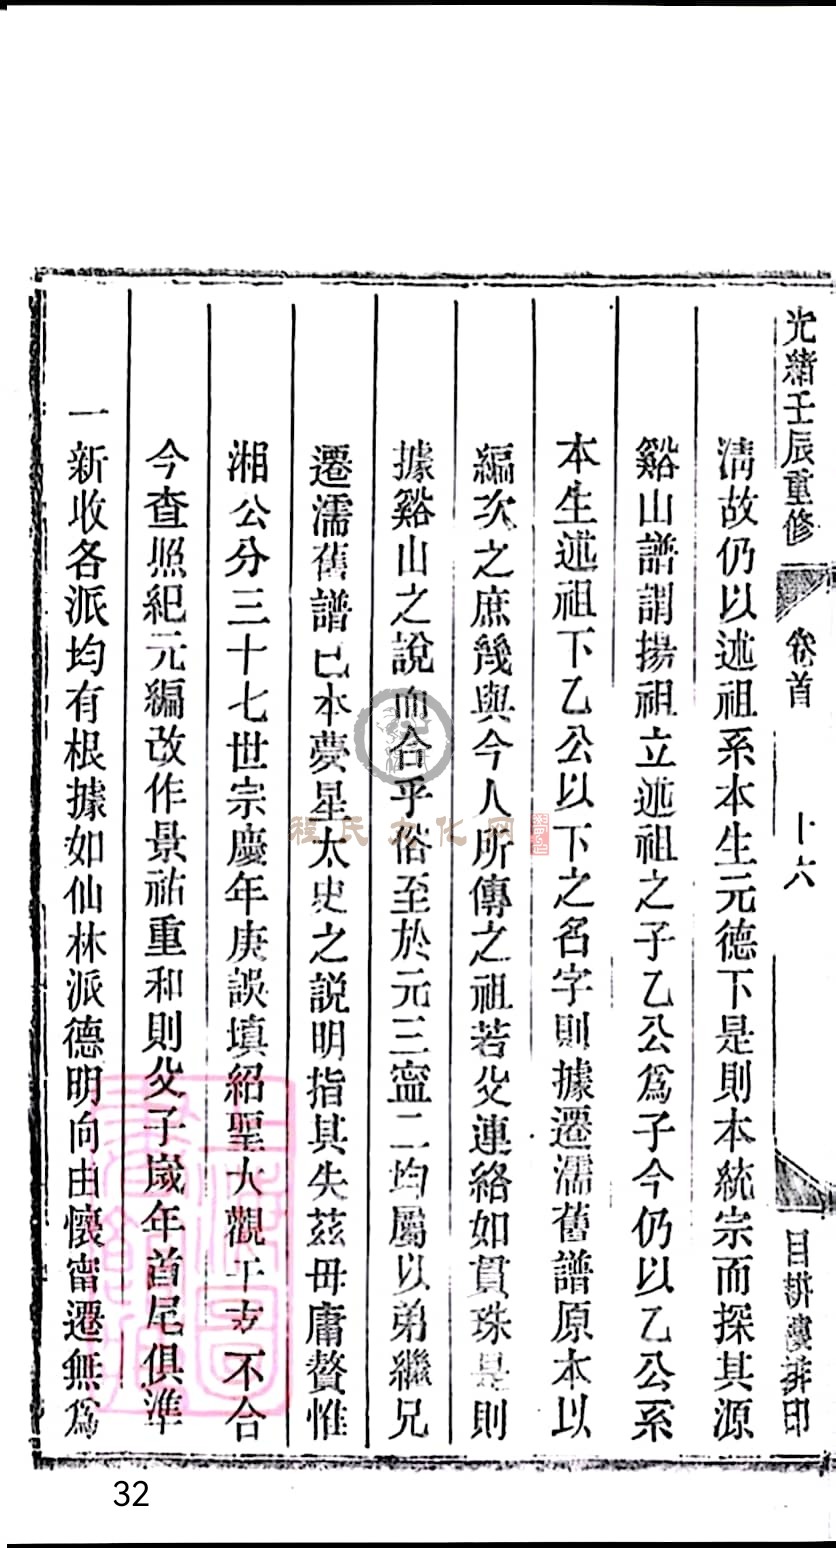 光緒壬辰重修
卷首
十六
目耕樓排印
清故仍以述祖系本生元德下是則本統宗而探其源
谿山譜謂揚祖立述祖之子乙公爲子今仍以乙公系
本生述祖下乙公以下之名字則據遷濡舊譜原本以
編次之庶幾與今人所傳之祖若父連絡如貫珠是則
據谿山之說而合乎俗至於元三寧二均屬以弟繼兄
遷濡舊譜已本夢星太史之説明指其失茲毋庸贅惟
湘公分三十七世宗慶年庚誤填紹聖大觀干支不合
今查照紀元編改作景祐重和則父子歲年首尾俱準
一新收各派均有根據如仙林派德明向由懷甯遷無爲
程氏文化网
32